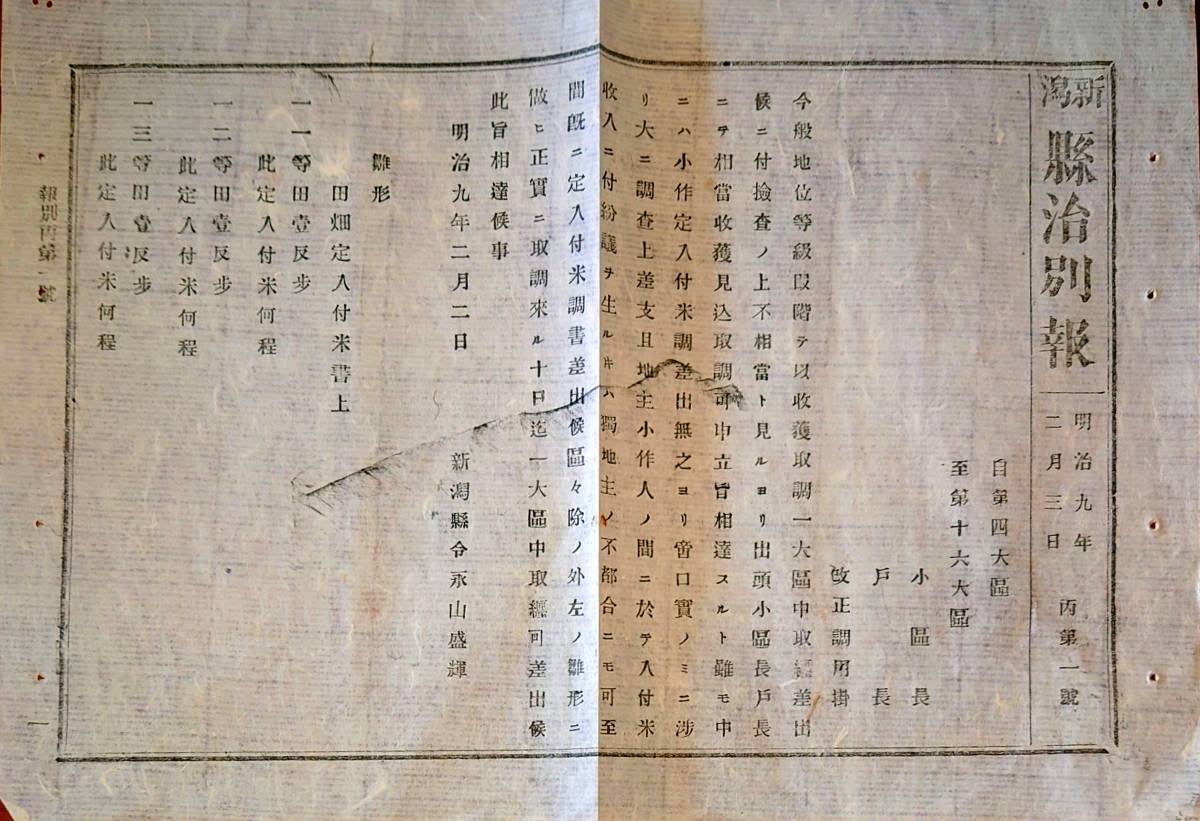 新潟縣治別報
明治九年
二月三日
丙第一號
自第四大區
至第十六大區
小區長
戸長
改正調用掛
今般地位等級段階ヲ以收獲取調一大區中取纒差出
候ニ付撿査ノ上不相當ト見ルヨリ出頭小區長戸長
ニテ相當收獲見込取調可申立旨相達スルト雖モ中
ニハ小作定入付米調差出無之ヨリ啻口實ノミニ涉
リ大ニ調査上差支且地主小作人ノ間ニ於テ入付米
收入ニ付紛議ヲ生ルヰハ獨地主ノ不都合ニモ可至
間既ニ定入付米調書差出候區々除ノ外左ノ雛形ニ
做ヒ正實ニ取調來ル十日迄一大區中取纒可差出候
此旨相達候事
明治九年二月二日
新潟縣令永山盛輝
雛形
田畑定入付米書上
一一等田壹反步
此定入付米何程
一二等田壹反步
此定入付米何程
一三等田壹反步
此定入付米何程
報別丙第一號
一